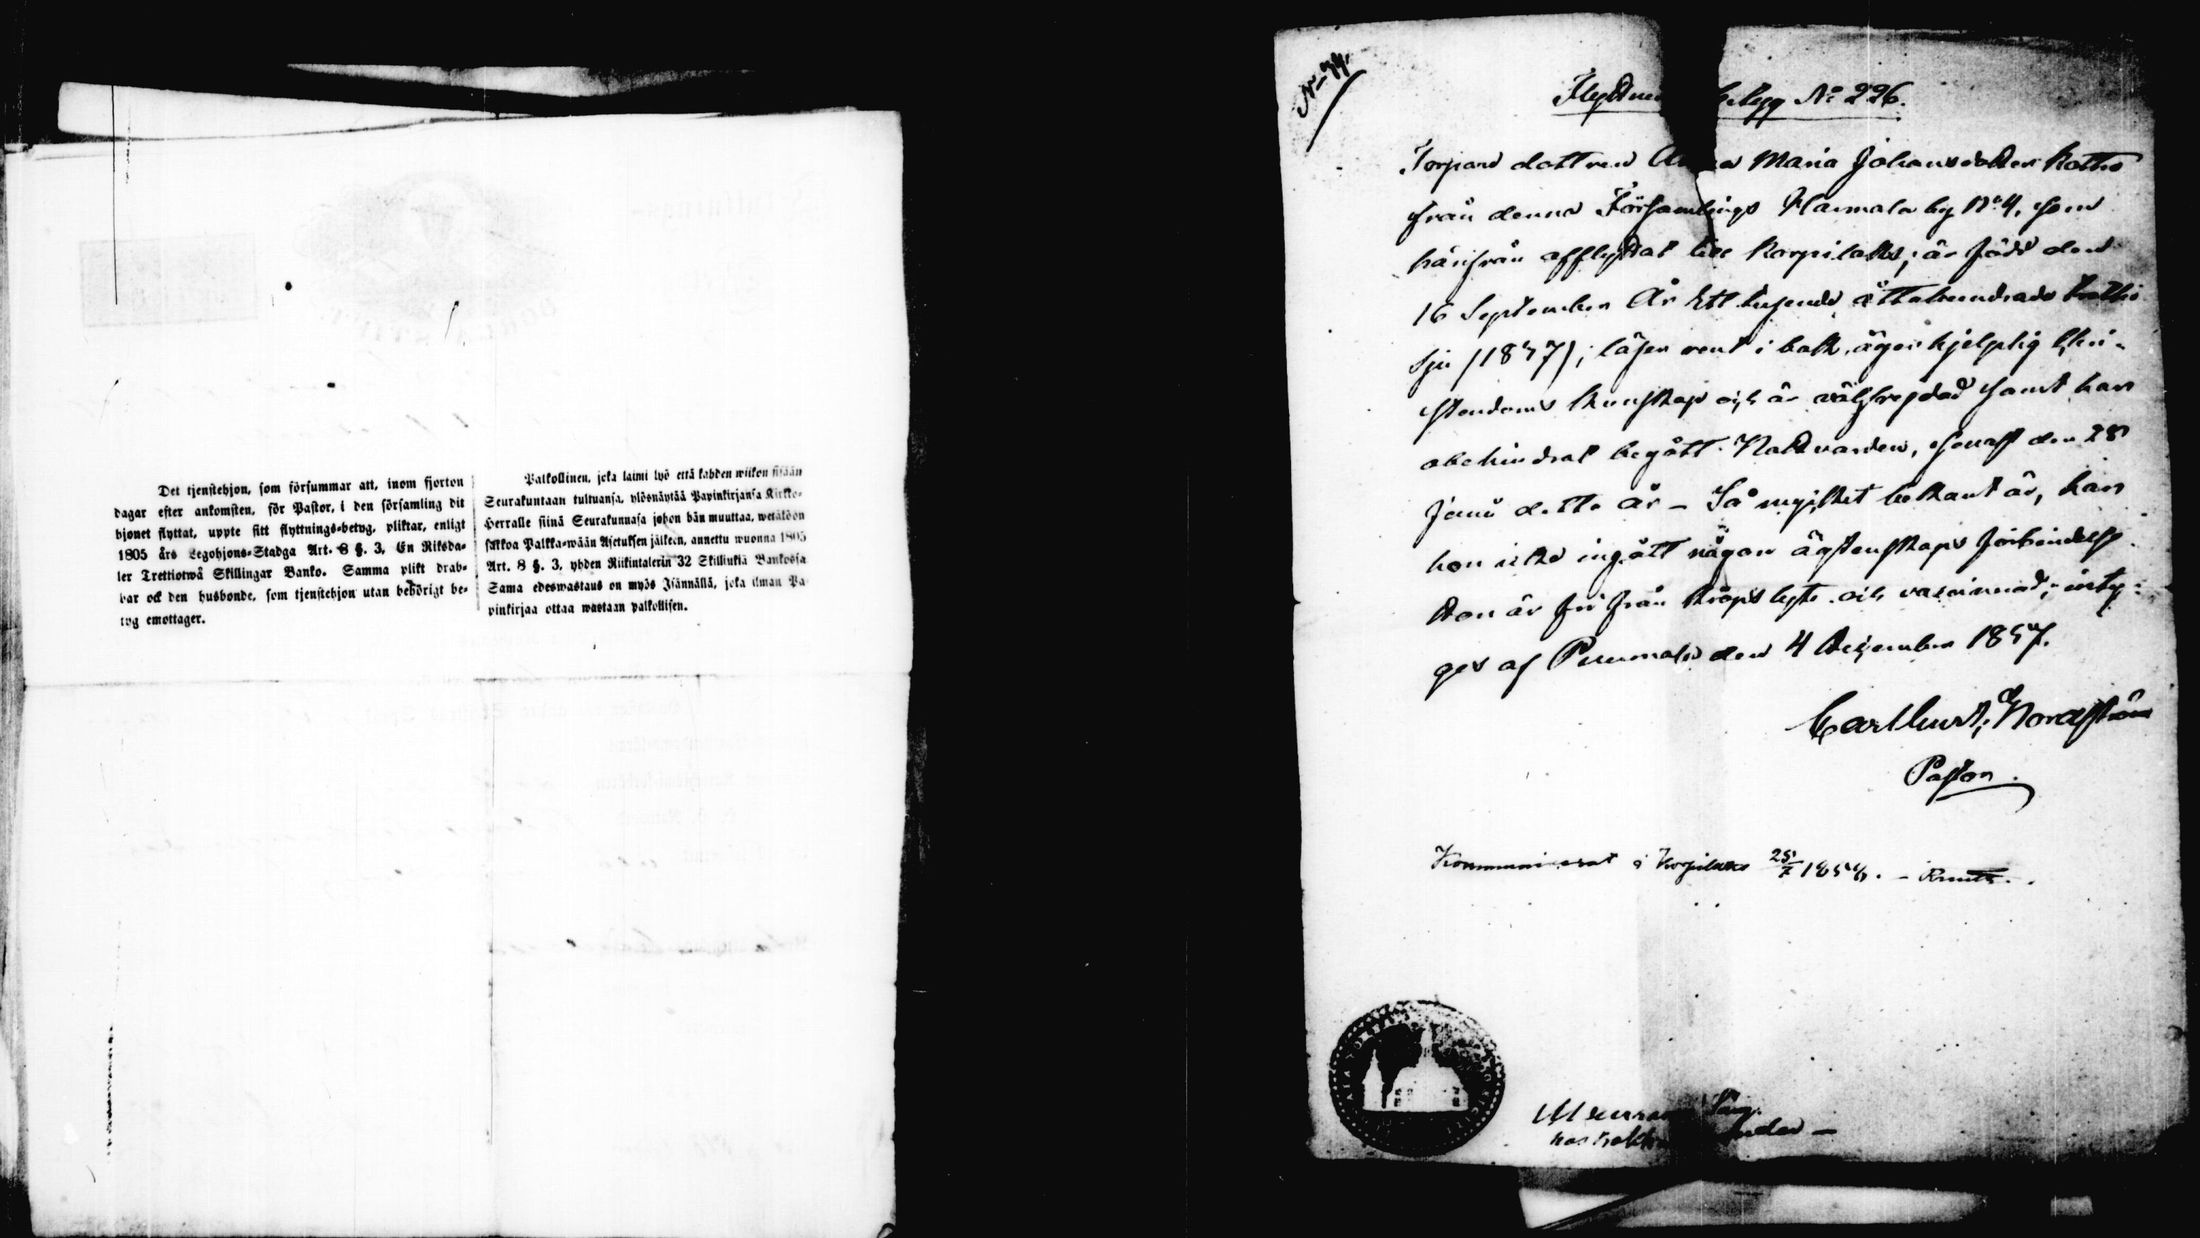 Det tjenstehjon, som försummar att, inom fjorton
dagar efter ankomsten, för Pastor, i den församling dit
hjonet flyttat, uppte sitt flyttnings-betyg, pliktar, enligt
1805 års Legohjons-Stadga Art. 8 §. 3, En Riksda-
ler Trettiotwå Skillingar Banko. Samma plikt drab-
bar ock den husbonde, som tjenstehjon utan behörigt be-
tyg emottager.
Palkollinen, joka laimi lyö että kahden wiikon sisään
Seurakuntaan tultuansa, ylösnäyttää Papinkirjansa Kirkko-
Herralle siinä Seurakunnasa johon hän muuttaa, wetäköön
sakkoa Palkka-wään Asetuksen jälkeen, annettu wuonna 1805
Art. 8 §. 3, yhden Riikintalerin 32 Skillinkiä Bankossa
Sama edeswastaus on myös Isännällä, joka ilman Pa-
pinkirjaa ottaa wastaan palkollisen.
No 74.
betyg No 226.
Torpare dottren Maria Johansdotter
från denna Församlings by No 4, som
härifrån afflyttat till Korpilaks, är född den
16 September År Ett tusende åttahundrade
sju (1837); läser rent i bok, äger hjelplig Chri-
stendoms kunskap och är välfrejdad samt har
obehindrat begått Nattvarden, senast den 28
Junii detta år – Så mycket bekant är, har
hon icke ingått någon ägtenskaps förbindelse
Hon är fri från kropslyte och vaccinerad; inty-
ges af den 4 December 1857.
Carl Gust. Nordström
Pastor.
Kommunicerat i Korpilaks 25/7 1858. –